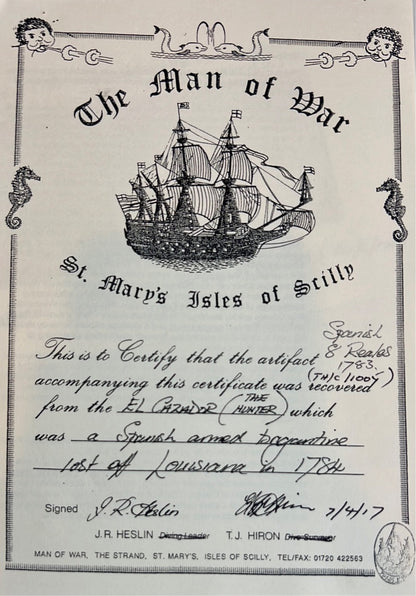 The Man of War
St. Mary's Isles of Scilly
Spanish
This is to Certify that the artifact 8 Reales
1783.
accompanying this certificate was recovered
from the EL CAZADOR (THE HUNTER) which
was a Spanish armed brigantine
lost off Louisiana in 1784
Signed J.R. Heslin 7/4/17
J.R. HESLIN Diving Leader T.J. HIRON Dive Surveyor
MAN OF WAR, THE STRAND, ST. MARY'S, ISLES OF SCILLY, TEL/FAX: 01720 422563